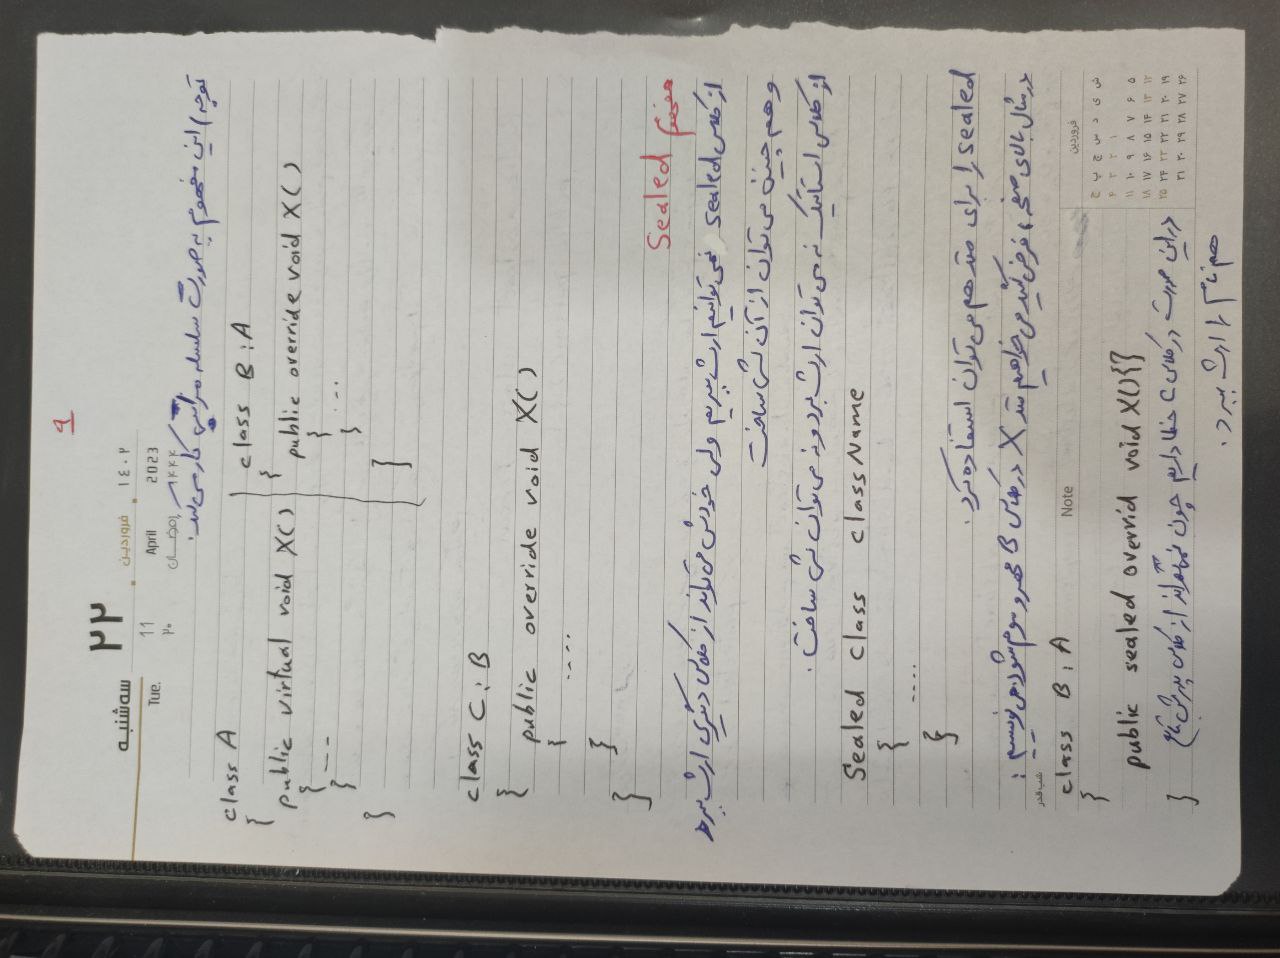 ۹
سه‌شنبه ۲۲ فروردین ۱٤۰۲
Tue. 11 April 2023
۲۰ رمضـــان ۱۴۴۴
توجه) این مفهوم به صورت سلسله مراتبی کار می‌کند.
class A
{
public virtual void X()
{ ---
}
}
class B : A
{
public override void X()
{
...
}
}
class C : B
{
public override void X()
{ .....
}
}
مفهوم Sealed
از کلاس sealed نمی‌توانیم ارث ببریم ولی خودش می‌تواند از کلاس دیگری ارث ببرد
و هم چنین می‌توان از آن شی ساخت
از کلاس استاتیک نه می‌توان ارث برد و نه می‌توان شی ساخت.
Sealed class className
{
....
}
sealed را برای متد هم می‌توان استفاده کرد.
در مثال بالای صفحه، فرض کنید می‌خواهیم متد X در کلاس B مهر و موم شود. می‌نویسیم :
شب قدر
class B : A
Note
{
public sealed overrid void X(){}
در این صورت در کلاس C خطا داریم چون نمی‌تواند از کلاس پدرش تابع
}
هم نام را ارث ببرد.
فروردین
ش ی د س چ پ ج
۱ ۲ ۳ ۴
۵ ۶ ۷ ۸ ۹ ۱۰ ۱۱
۱۲ ۱۳ ۱۴ ۱۵ ۱۶ ۱۷ ۱۸
۱۹ ۲۰ ۲۱ ۲۲ ۲۳ ۲۴ ۲۵
۲۶ ۲۷ ۲۸ ۲۹ ۳۰ ۳۱